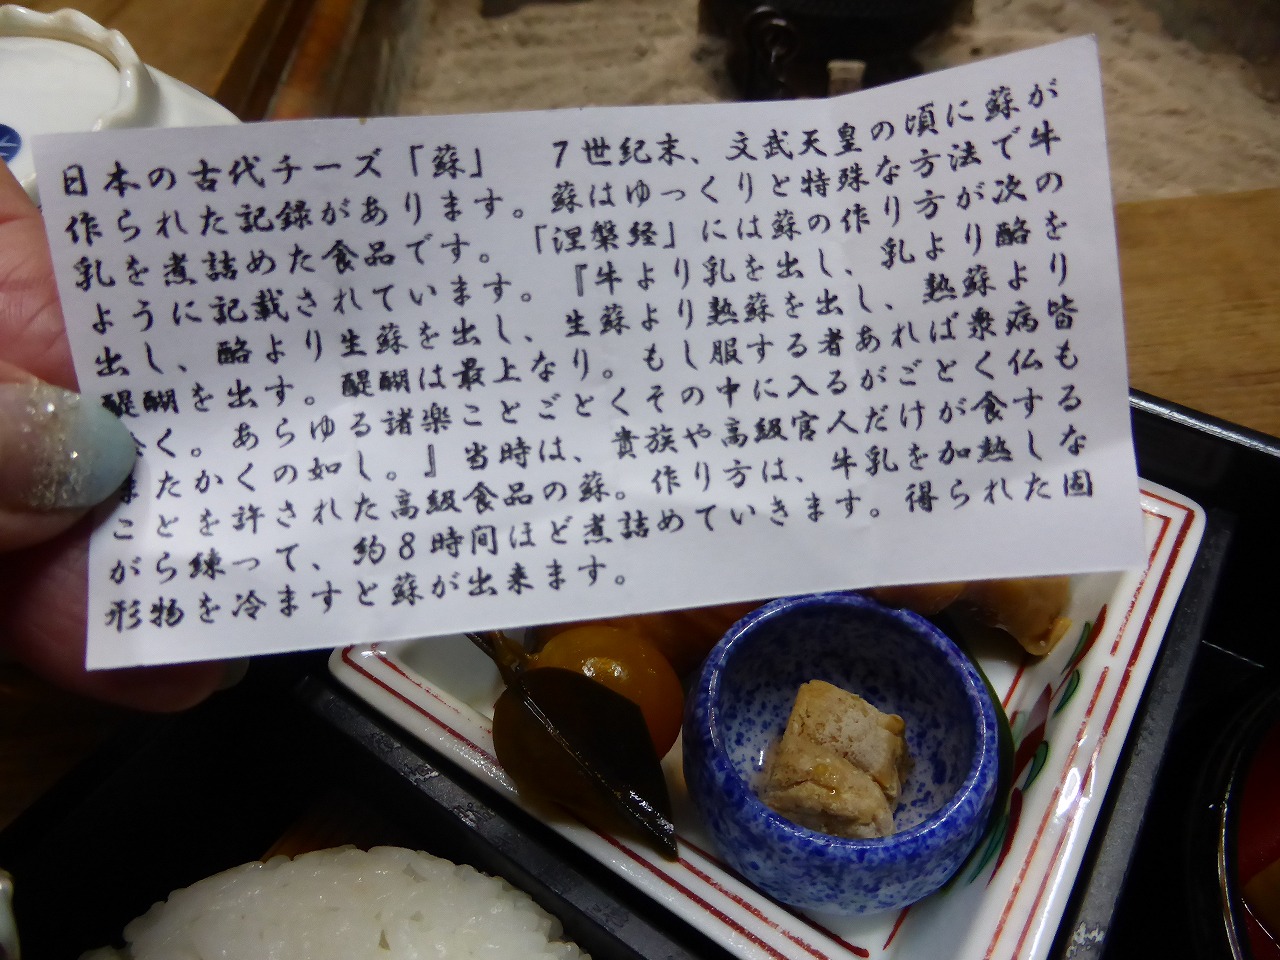 日本の古代チーズ「蘇」　７世紀末、文武天皇の頃に蘇が
作られた記録があります。蘇はゆっくりと特殊な方法で牛
乳を煮詰めた食品です。「涅槃経」には蘇の作り方が次の
ように記載されています。『牛より乳を出し、乳より酪を
出し、酪より生蘇を出し、生蘇より熟蘇を出し、熟蘇より
醍醐を出す。醍醐は最上なり。もし服する者あれば衆病皆
く。あらゆる諸楽ことごとくその中に入るがごとく仏も
またかくの如し。』当時は、貴族や高級官人だけが食する
ことを許された高級食品の蘇。作り方は、牛乳を加熱しな
がら練って、約８時間ほど煮詰めていきます。得られた固
形物を冷ますと蘇が出来ます。